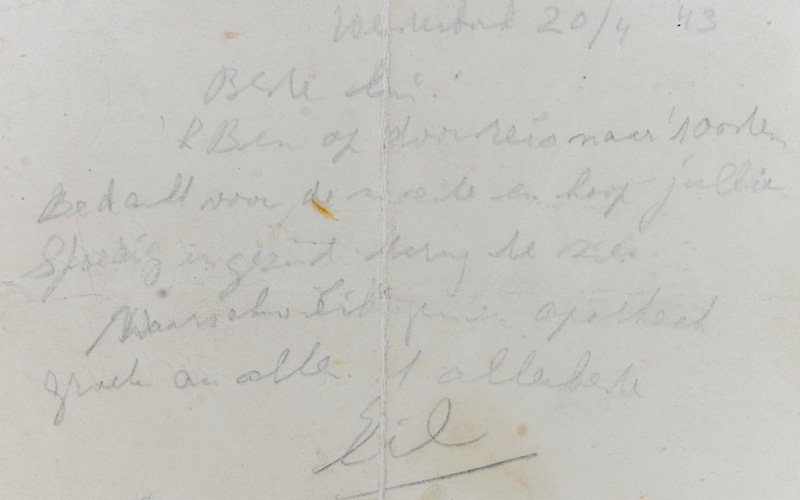 Westerbork 20/4 '43
Beste
'k Ben op doorreis naar 't oosten
Bedankt voor de moeite en hoop jullie
Spoedig en gezond terug te zien
Waarschuw in apotheek
groeten aan allen. 't allerbeste